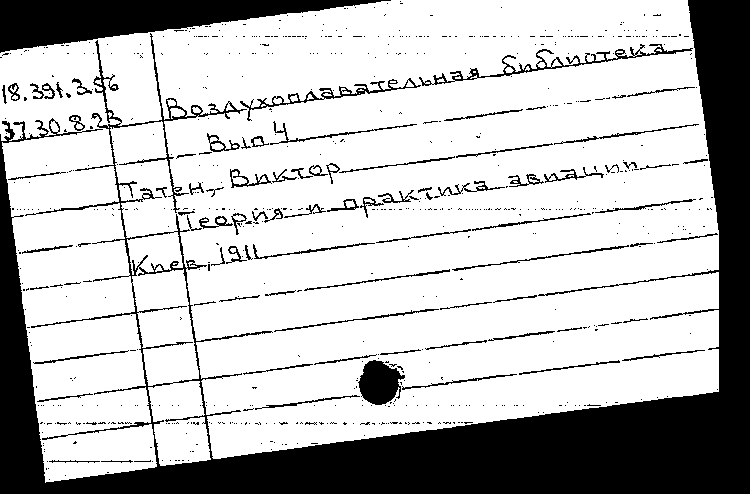 18.391.3.56
37.30.8.23
Воздухоплавательная библиотека
Вып 4
Татен, Виктор
Теория и практика авиации.
Киев, 1911